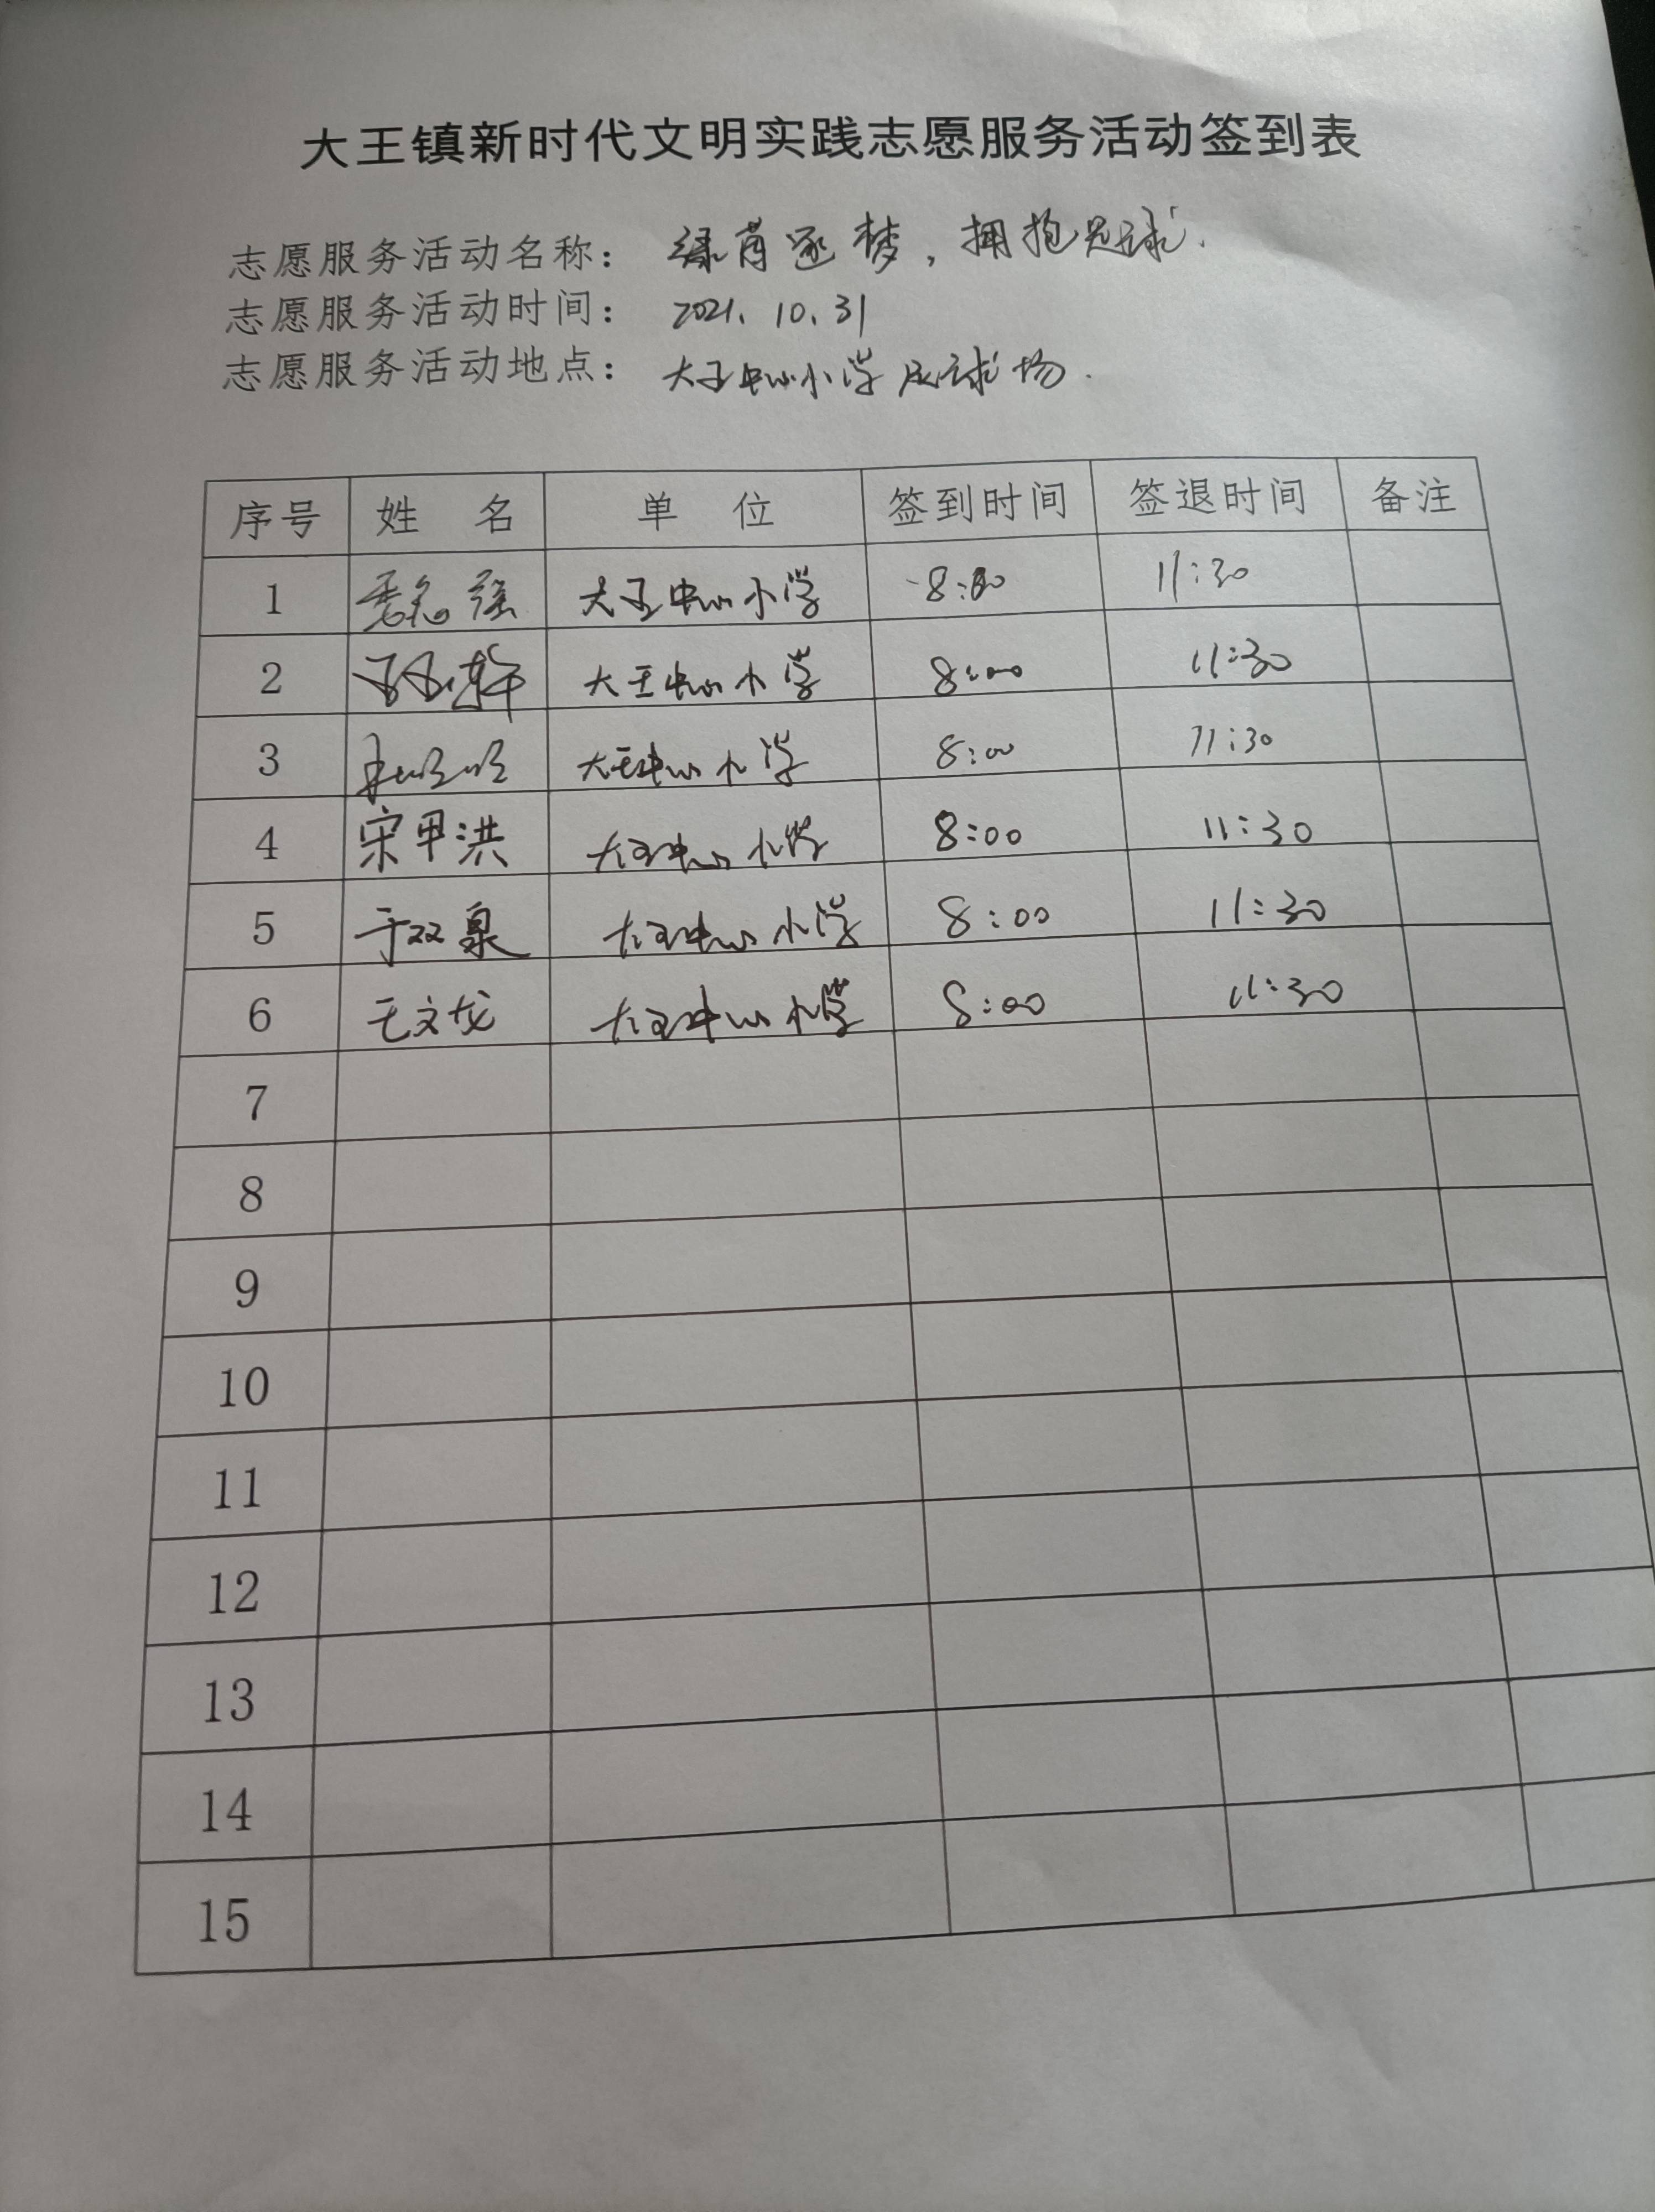 大王镇新时代文明实践志愿服务活动签到表
志愿服务活动名称： 绿茵逐梦，拥抱足球.
志愿服务活动时间： 2021.10.31
志愿服务活动地点： 大王中心小学足球场.
序号 姓 名 单 位 签到时间 签退时间 备注
1 强 大王中心小学 8:00 11:30
2 大王中心小学 8:00 11:30
3 大王中心小学 8:00 11:30
4 宋甲洪 大王中心小学 8:00 11:30
5 于双泉 大王中心小学 8:00 11:30
6 王文龙 大王中心小学 8:00 11:30
7
8
9
10
11
12
13
14
15